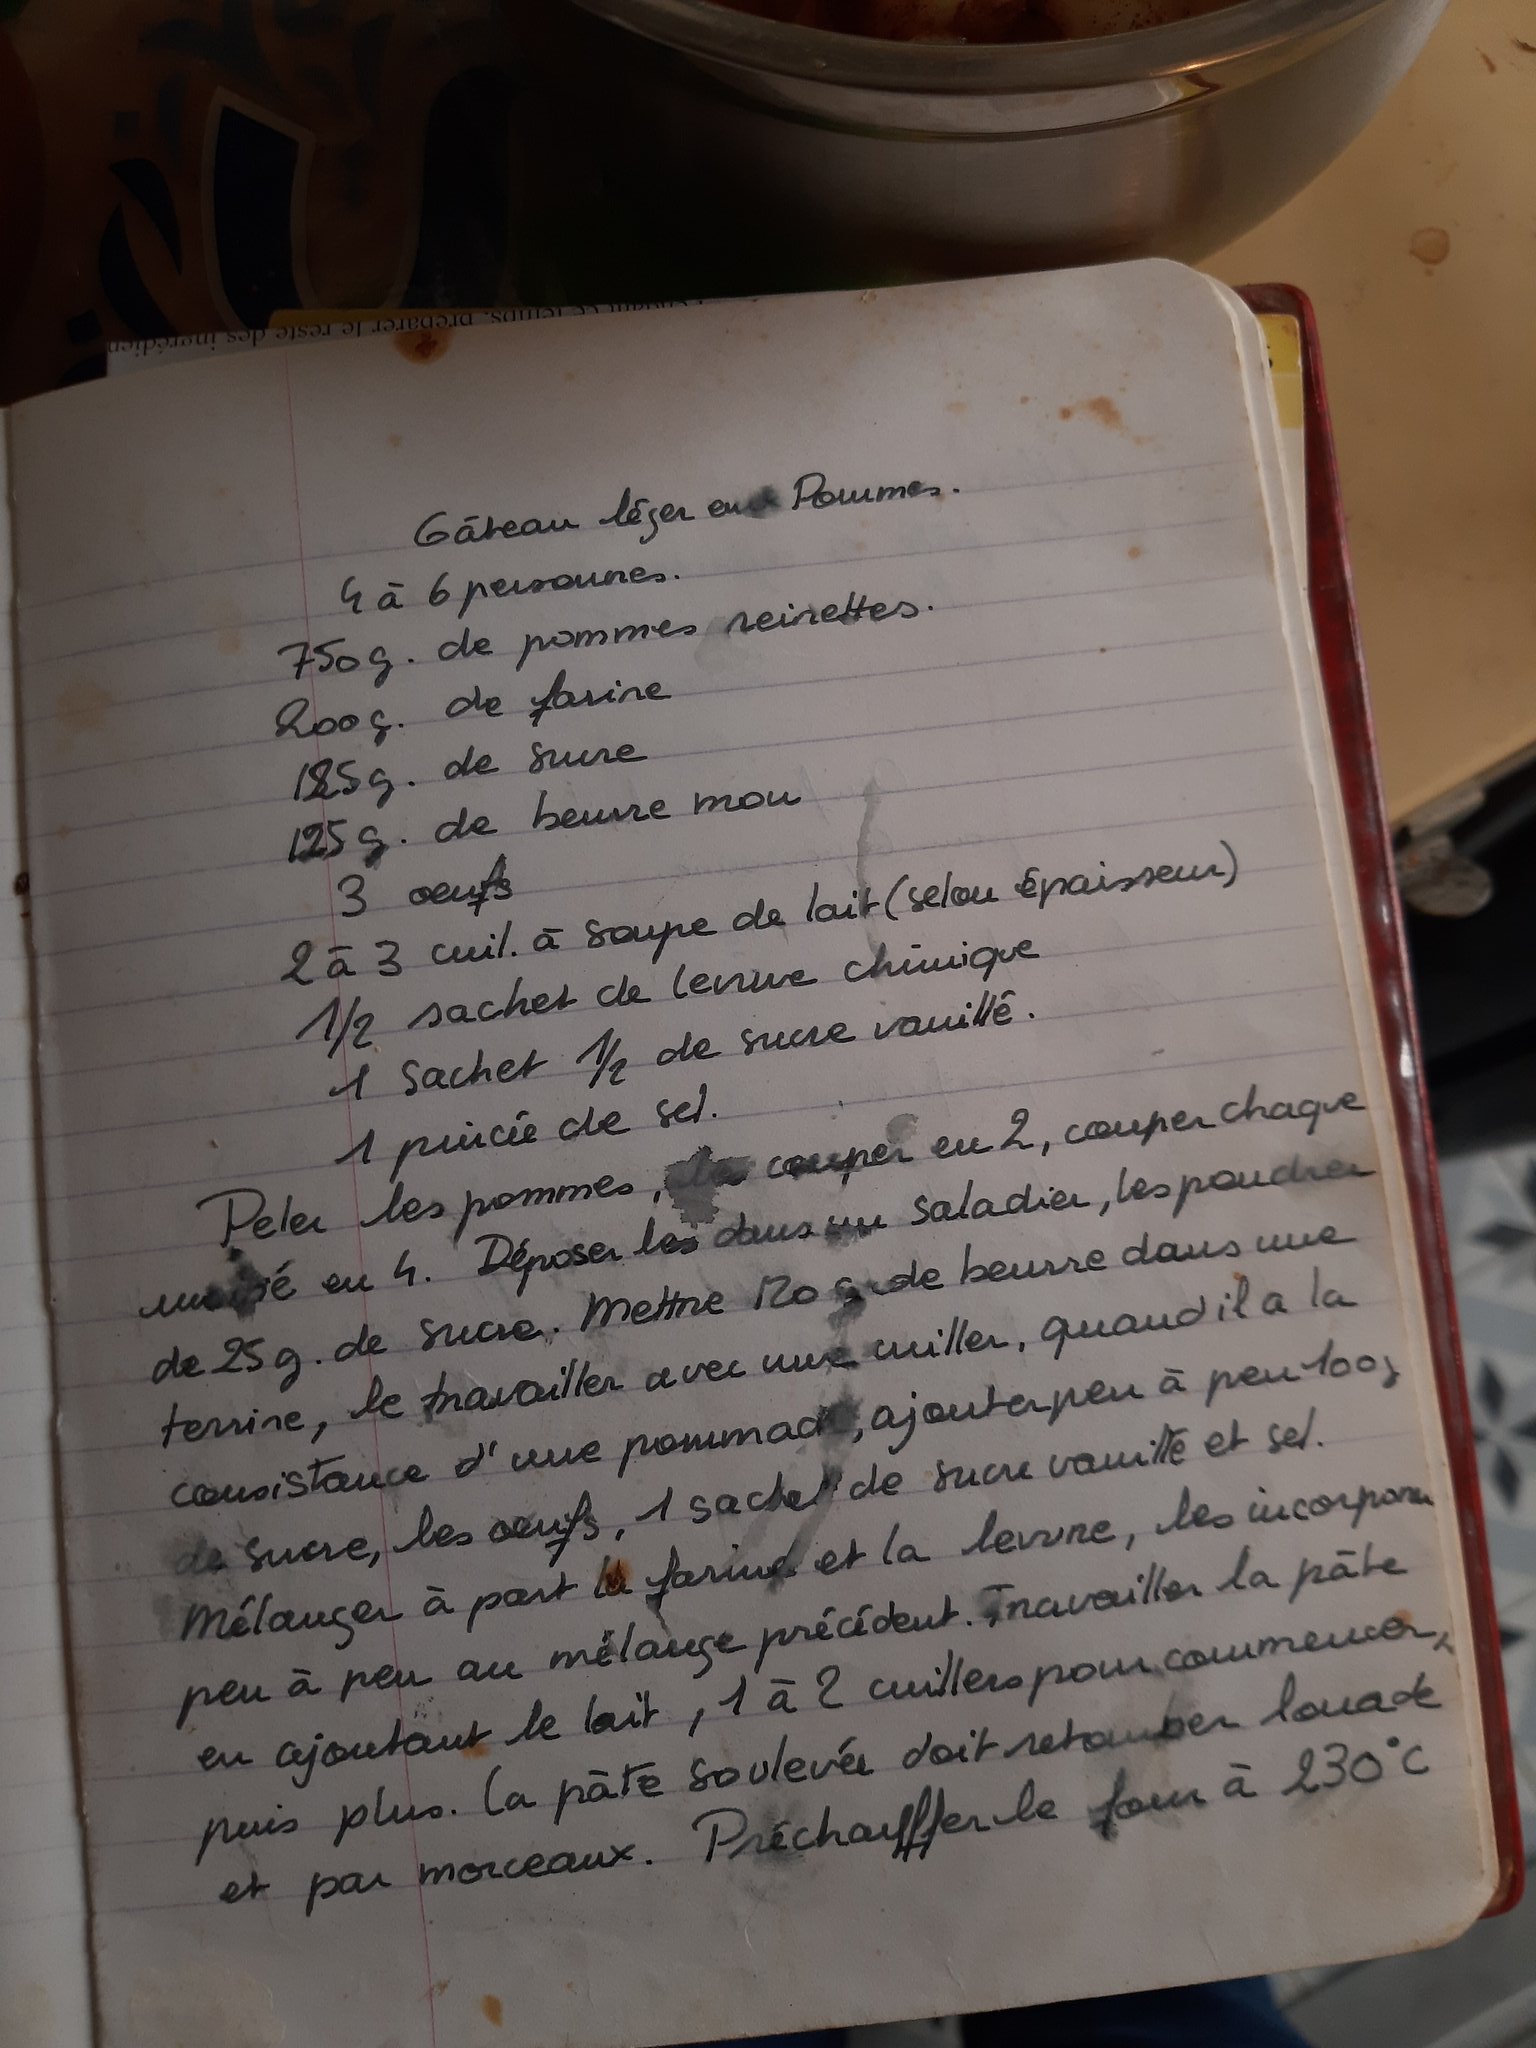 Pendant ce temps, préparer le reste des ingrédien
Gâteau léger aux Pommes.
4 à 6 personnes.
750g. de pommes reinettes.
200g. de farine
125g. de sucre
125g. de beurre mou
3 oeufs
2 à 3 cuil. à soupe de lait (selon épaisseur)
1/2 sachet de levure chimique
1 sachet 1/2 de sucre vanillé.
1 pincée de sel.
Peler les pommes, les couper en 2, couper chaque
moitié en 4. Déposer les dans un saladier, les poudrer
de 25g. de sucre. Mettre 120g de beurre dans une
terrine, le travailler avec une cuiller, quand il a la
consistance d'une pommade, ajouter peu à peu 100g
de sucre, les oeufs, 1 sachet de sucre vanillé et sel.
Mélanger à part la farine et la levure, les incorporer
peu à peu au mélange précédent. Travailler la pâte
en ajoutant le lait, 1 à 2 cuillers pour commencer,
puis plus. La pâte soulevée doit retomber lourde
et par morceaux. Préchauffer le four à 230°C